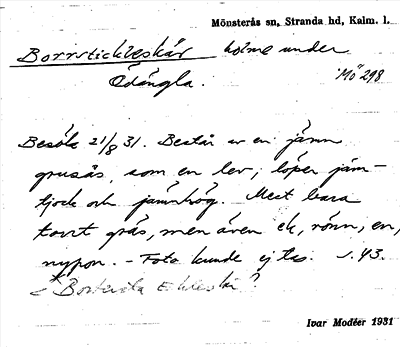 Mönsterås sn, Stranda hd, Kalm. l.
Borrstickleskär holme under
Ödängla. Mö 298
Besökt 21/8 31. Består av en jämn
grusås, som en lev; löper jäm-
tjock och jämnhög. Mest bara
torrt gräs, men även ek, rönn, en,
nypon. - Foto kunde ej tas. s. 43.
Ivar Modéer 1931